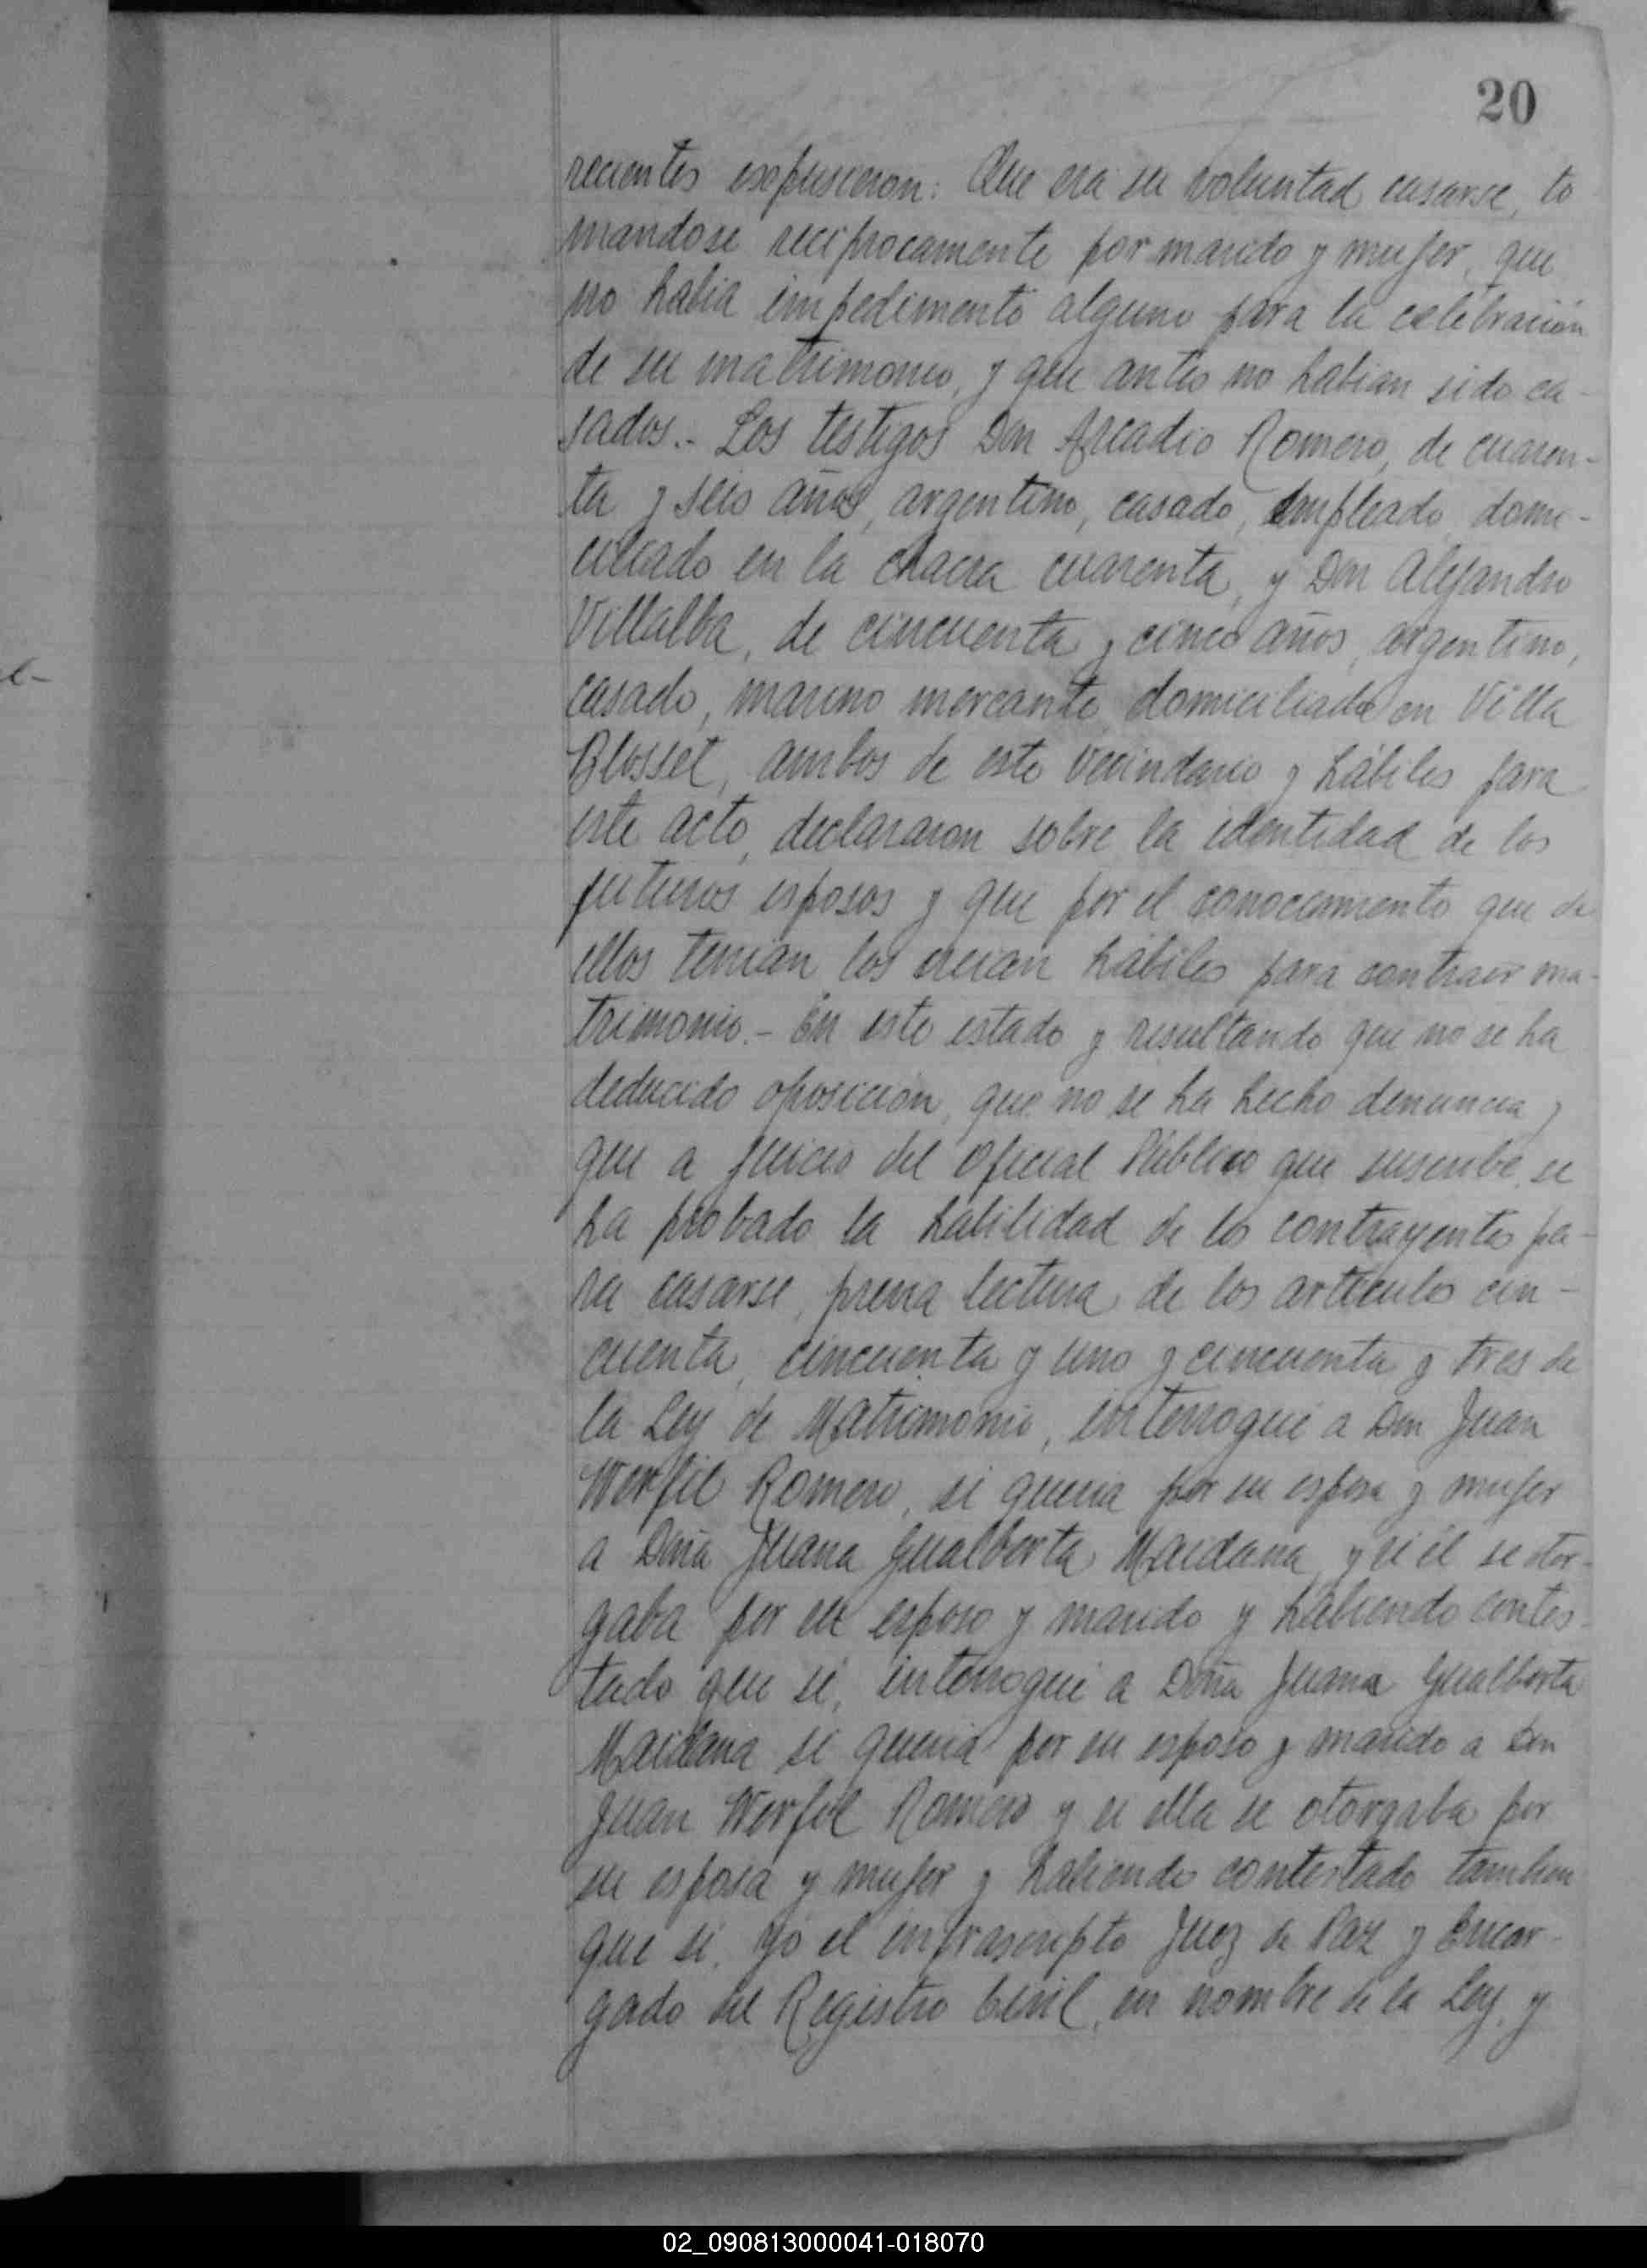 20
recientes expusieron: Que era su voluntad casarse, to
mandose reciprocamente por marido y mujer, que
no habia impedimento alguno para la celebración
de su matrimonio, y que antes no habian sido ca-
sados.- Los testigos Don Arcadio Romero, de cuaren-
ta y seis años, argentino, casado, empleado, domi-
ciliado en la chacra cuarenta, y Don Alejandro
Villalba, de cincuenta y cinco años, argentino,
casado, marino mercante, domiciliado en Villa
Blosset, ambos de este vecindario y hábiles para
este acto, declararon sobre la identidad de los
futuros esposos y que por el conocimiento que de
ellos tenian los creian hábiles para contraer ma-
trimonio.- En este estado y resultando que no se ha
deducido oposición, que no se ha hecho denuncia y
que a juicio del Oficial Público que suscribe, se
ha probado la habilidad de los contrayentes pa-
ra casarse, previa lectura de los articulos cin-
cuenta, cincuenta y uno y cincuenta y tres de
la Ley de Matrimonio, interrogué a Don Juan
Werfil Romero, si queria por su esposa y mujer
a Doña Juana Gualberta Maidana, y si él se otor-
gaba por su esposo y marido y habiendo contes-
tado que si, interrogué a Doña Juana Gualberta
Maidana si queria por su esposo y marido a Don
Juan Werfil Romero y si ella se otorgaba por
su esposa y mujer y habiendo contestado tambien
que si, yo el infrascripto Juez de Paz y Encar-
gado del Registro Civil, en nombre de la Ley, y
02_090813000041-018070